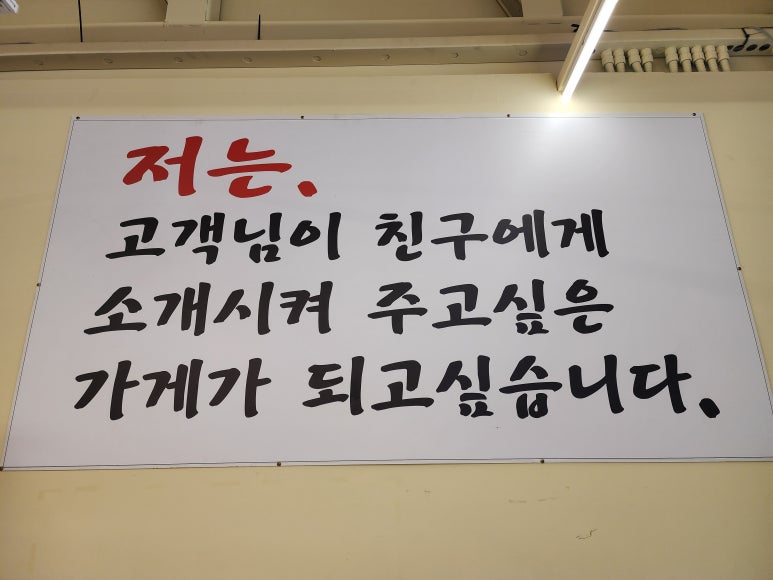 저는.
고객님이 친구에게
소개시켜 주고싶은
가게가 되고싶습니다.